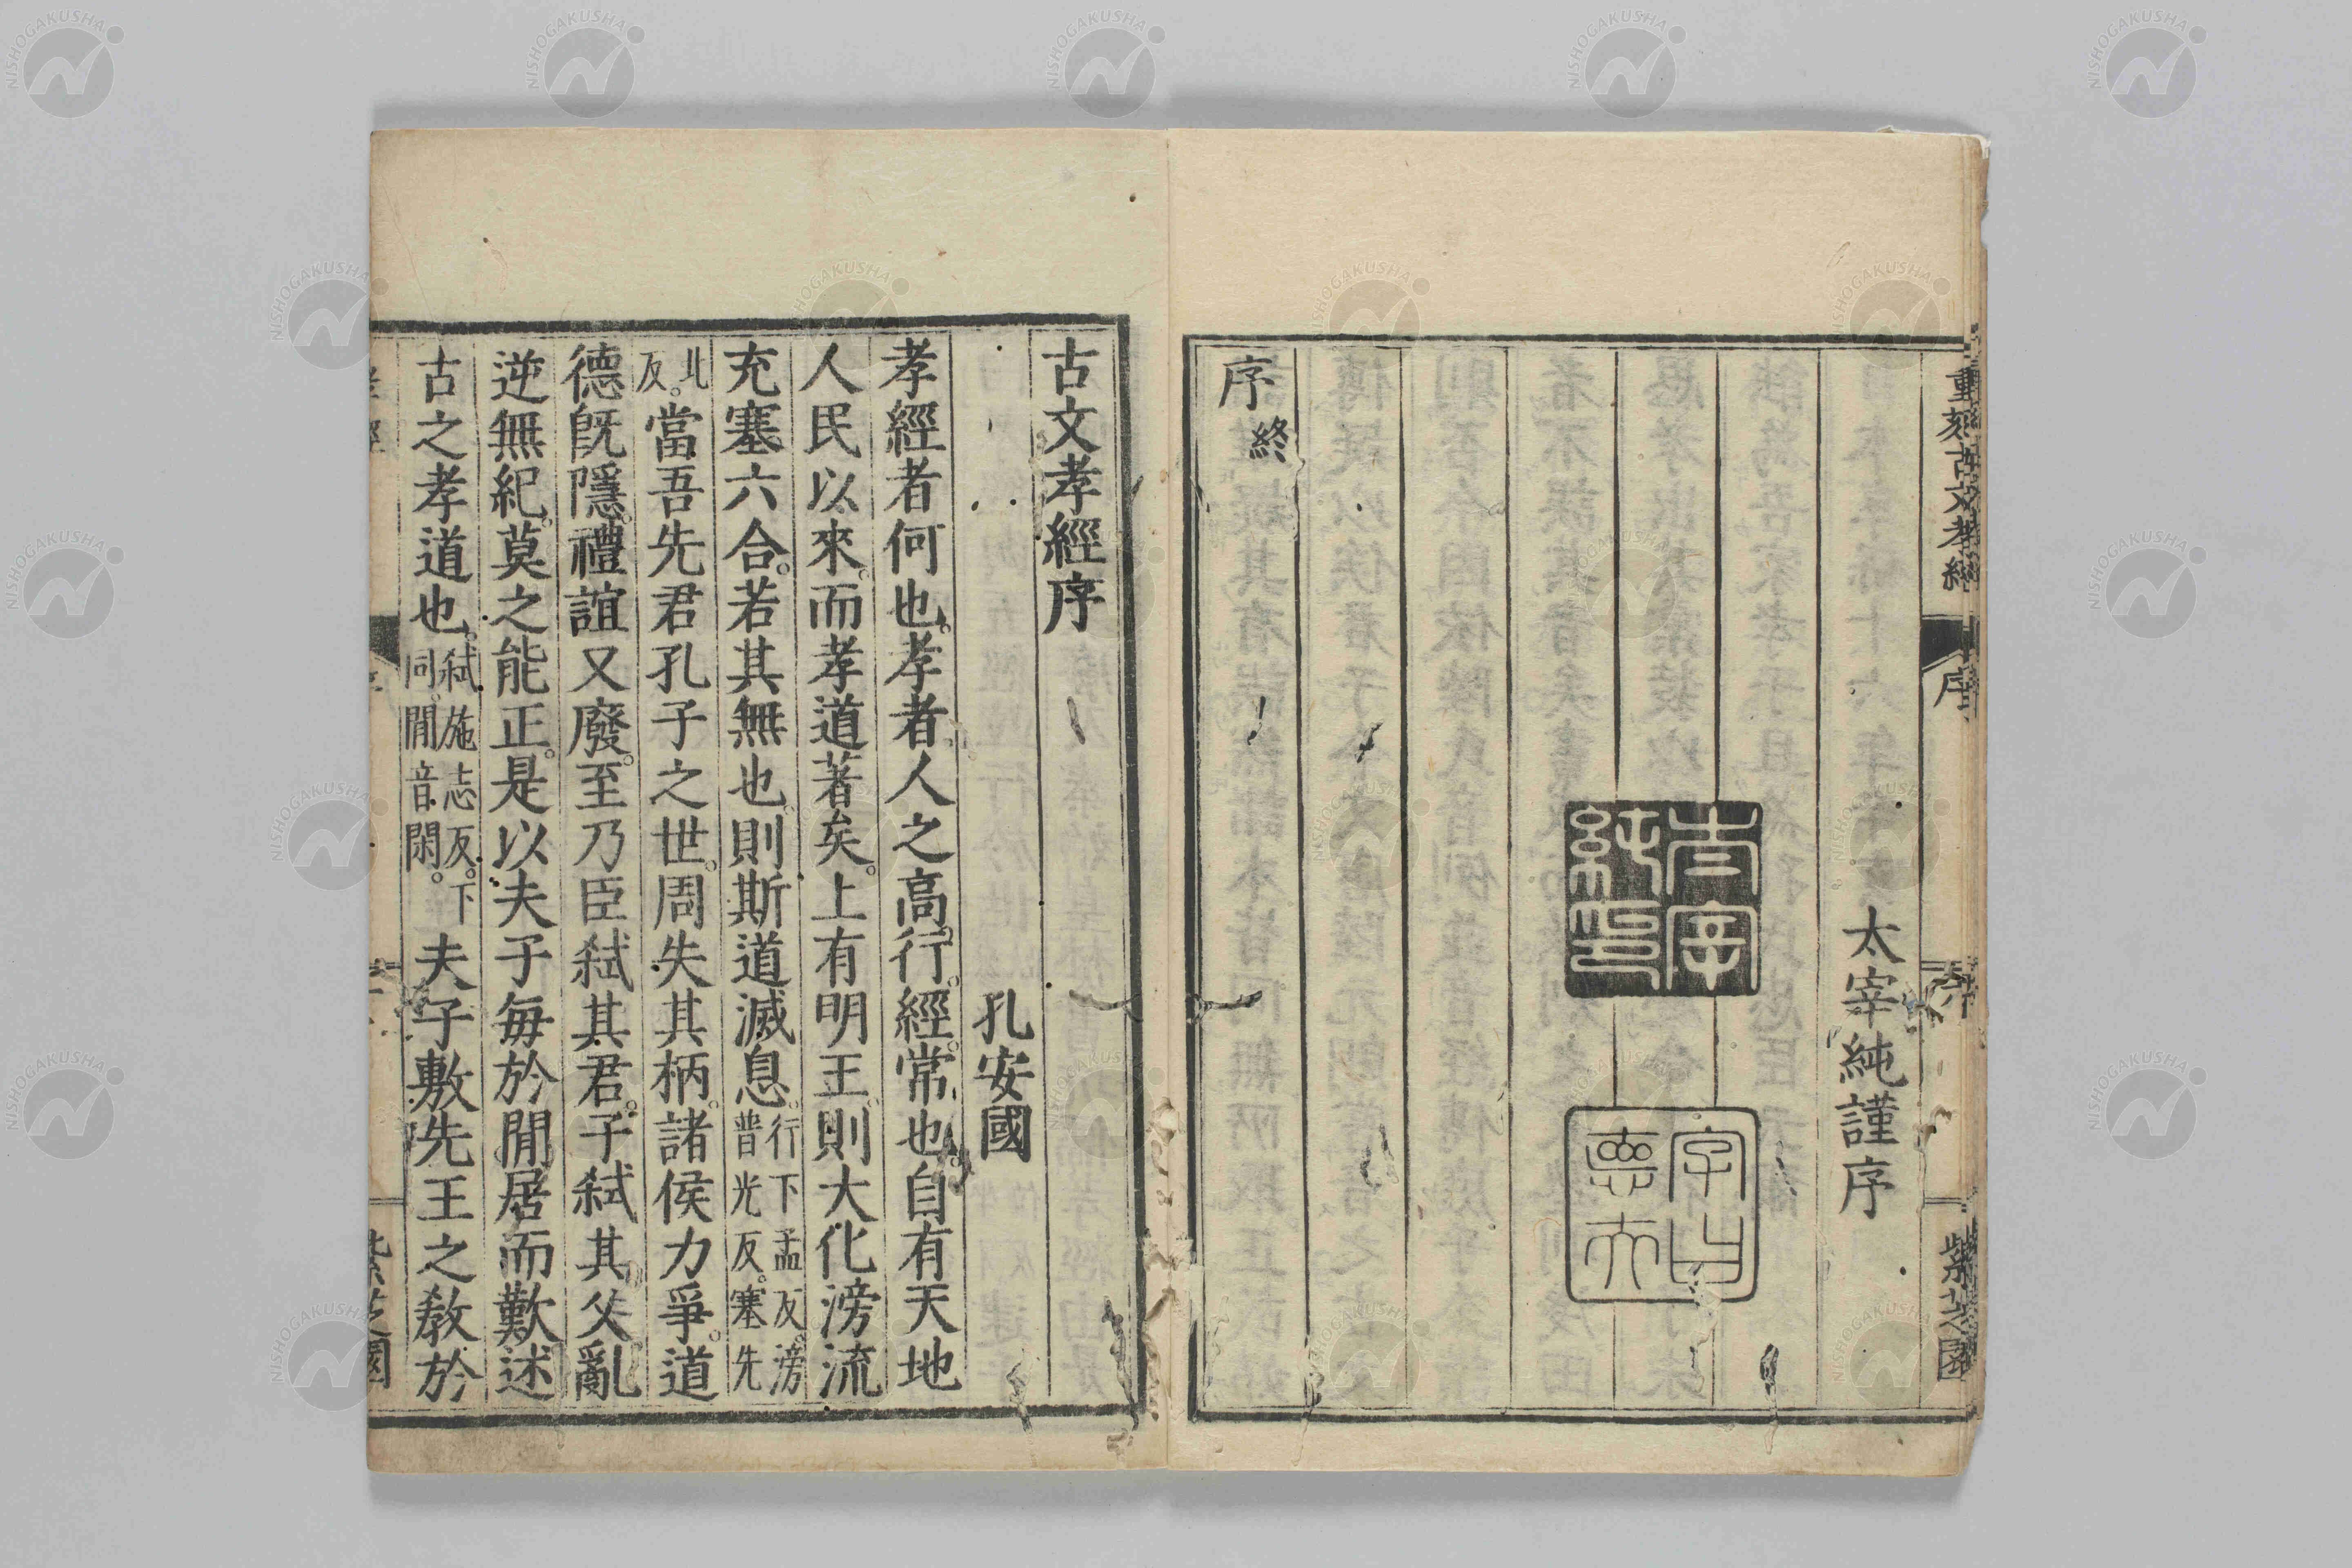 重刻古文孝經
序
紫芝園
太宰純謹序
太宰
純印
字曰
德夫
序終
古文孝經序
孔安國
孝經者何也。孝者人之高行。經常也。自有天地
人民以來。而孝道著矣。上有明王。則大化滂流
充塞六合。若其無也。則斯道滅息。行下孟反。滂普光反。塞先
北反。當吾先君孔子之世。周失其柄。諸侯力爭。道
德旣隱。禮誼又廢。至乃臣弑其君。子弑其父。亂
逆無紀。莫之能正。是以夫子每於閒居而歎述
古之孝道也。弑施志反。下同。閒音閑。夫子敷先王之教於
NISHOGAKUSHA